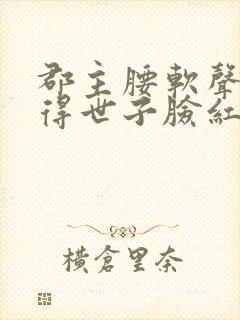 郡主腰軟聲
得世子臉紅
橫倉里奈